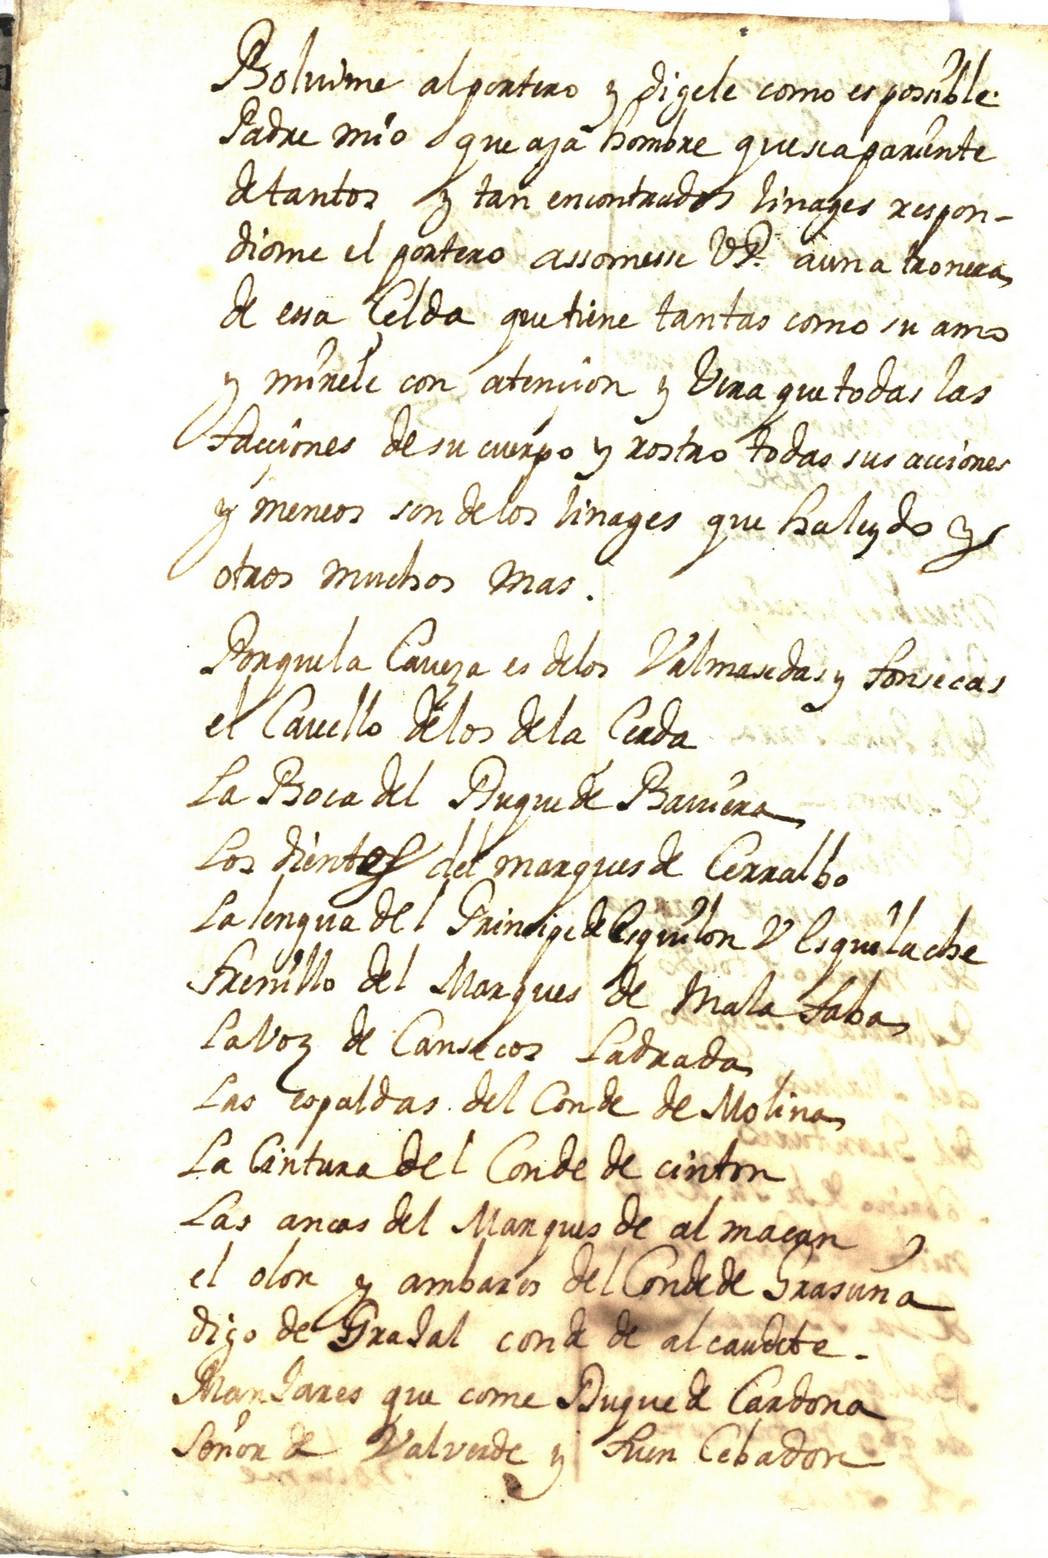 Bolvime al portero y digele como es posible
Padre mio que aja hombre que sea pariente
de tantos y tan encontrados linages respon-
diome el portero assomesse VP. a una tronera
de essa Celda que tiene tantas como su amo
y mirele con atencion y vera que todas las
facciones de su cuerpo y rostro todas sus acciones
y meneos son de los linages que ha leydo y
otros muchos mas.
Porque la Caveza es de los Valmasedas y fonsecas
el Cavello de los de la Cerda
La Boca del Duque de Baviera
Los dientes del marques de Cerralbo
La lengua del Principe de Esquilon V Esquilache
frenillo del Marques de Mala faba
La Voz de Cansecos Ladrada
Las espaldas del Conde de Molina
La Cintura del Conde de cinton
Las ancas del Marques de almacan
el olor y ambares del Conde de Grasuna
digo de Grajal conde de alcaudete.
Manjares que come Duque de Cardona
Señor de Valverde y fuen Cebadon